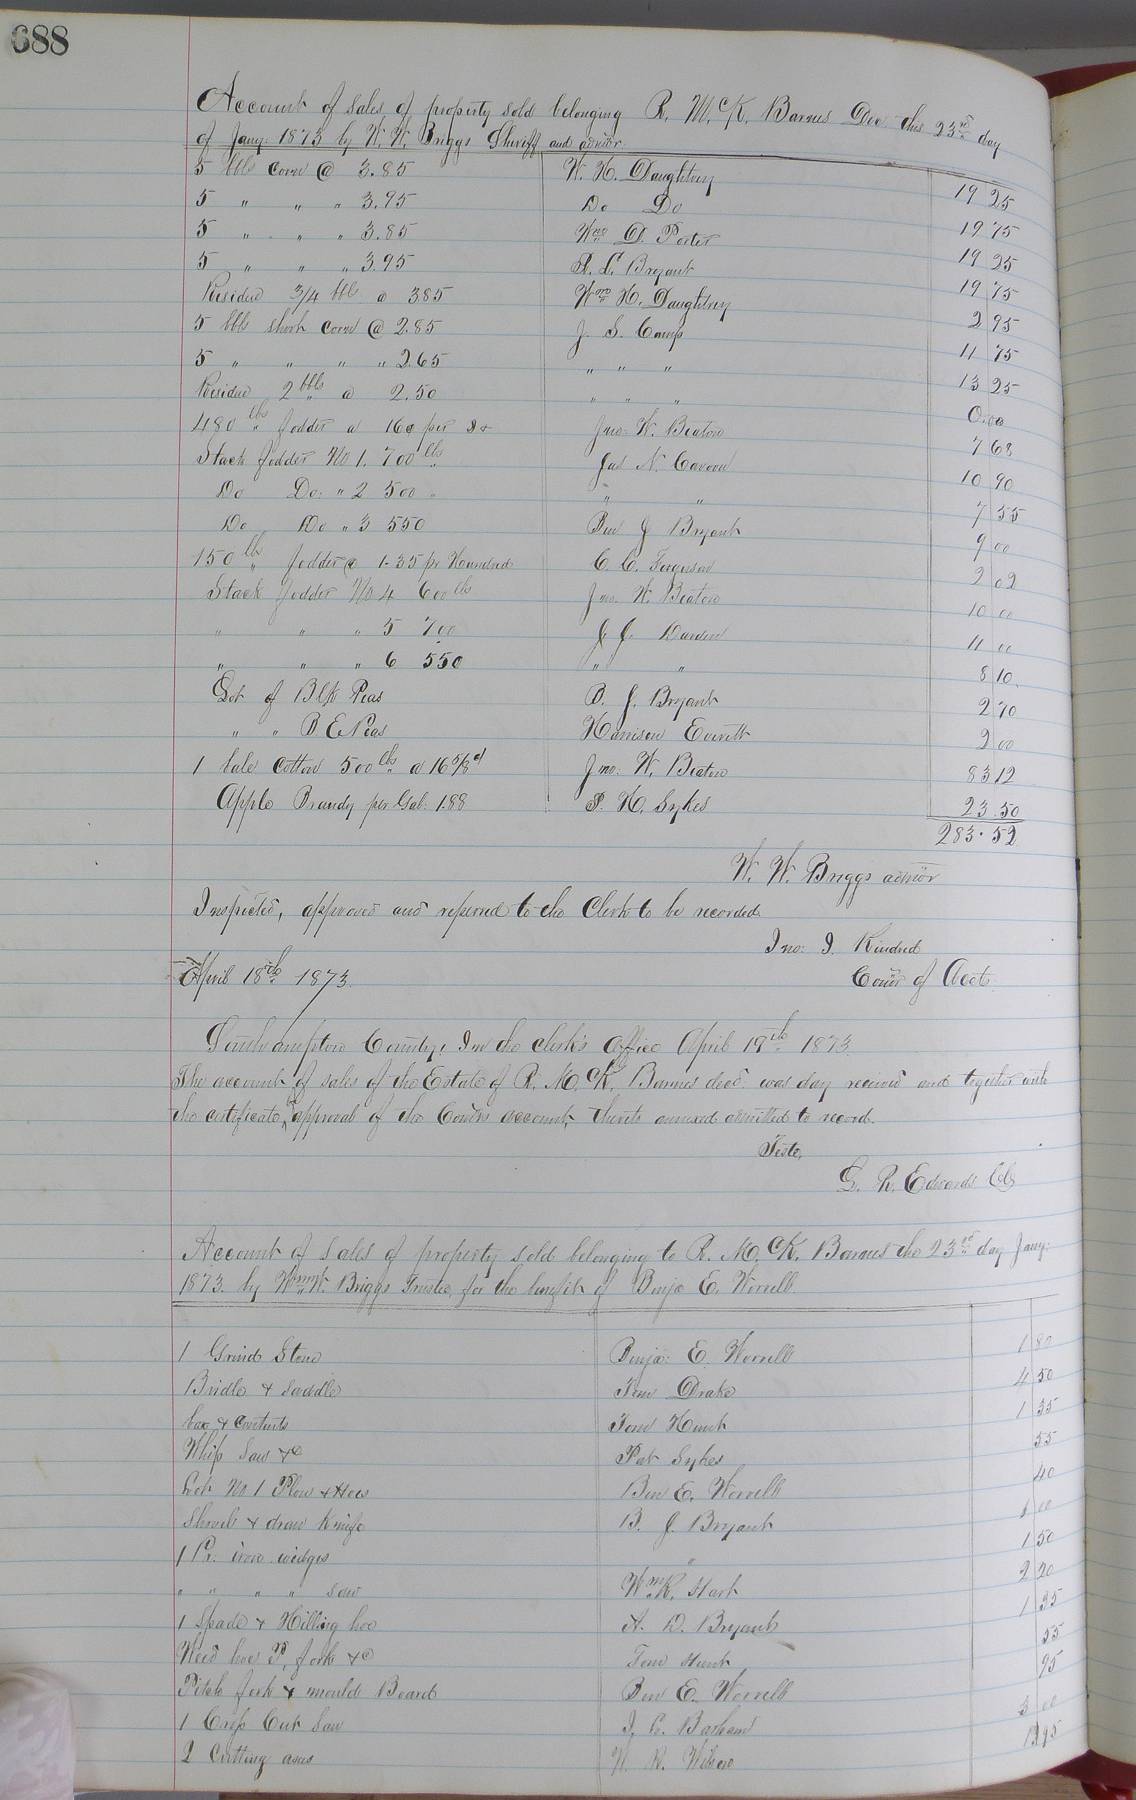 688
Account of sales of property sold belonging R. McK. Barnes Dec. this 23rd day
of Jany. 1873 by W. W. Briggs Sheriff and admor.
5 bbls corn @ 3.85 W. H. Daughtrey 19 25
5 " " " 3.95 Do Do 19 75
5 " " " 3.85 Wm D. Porter 19 25
5 " " " 3.95 R. L. Bryant 19 75
Residue 3/4 bbl a 385 Wm H. Daughtrey 2 95
5 bbls short corn @ 2.85 J. S. Camp 11 75
5 " " " " 2.65 " " " 13 25
Residue 2 bbls a 2.50 " " " 0.00
480 lbs fodder a 16¢ per Jno. W. Beaton 7 68
Stack fodder No 1. 700 lbs Jas N. 10 90
Do Do. " 2 500 " " " 7 55
Do Do " 3 550 Ben J Bryant 9 00
150 lbs fodder @ 1.35 pr Hundred C. C. Ferguson 2 02
Stack fodder No 4 600 lbs Jno. W. Beaton 10 00
" " " 5 700 J. J. Darden 11 00
" " " 6 550 " " 8 10
Lot of Blk Peas B. J. Bryant 2 70
" " B. E. Peas Harrison Everett 2 00
1 bale cotton 500 lbs a 16 5/8 ct Jno: W. Beaton 83 12
Apple Brandy per Gal. 1.88 P. H. Sykes 23.50
283.52
W. W. Briggs admor
Inspected, approved and referred to the Clerk to be recorded
Jno: J. Kindred
April 18th 1873. Comr of Acct.
Southampton County: In the clerk's office April 19th 1873.
The account of sales of the Estate of R. McK. Barnes decd. was day received and together with
the certificate, & approval of the Comrs account, thereto annexed admitted to record.
Teste,
L. R. Edwards Clk
Account of sales of property sold belonging to R. McK. Barnes the 23rd day Jany:
1873. by Wm W. Briggs Trustee, for the benefit of Benja E. Worrell
1 Grind Stone Benja: E. Worrell 1 80
Bridle & saddle Tom Drake 4 50
box & contents Tom Hunt 1 35
Whip saw &c Pat Sykes 55
Lot No 1 Plow & Hoes Ben E. Worrell 40
Shovel & draw knife B. J. Bryant 1 00
1 Pr. iron wedges " 1 50
" " " " saw Wm R. Hart 2 20
1 Spade & Hilling hoe A. D. Bryant 1 35
Weed hoe P. fork &c Tom Hunt 55
Pitch fork & mould Board Ben E. Worrell 95
1 Cross Cut Saw J. C. Barham 3 00
2 Cutting axes